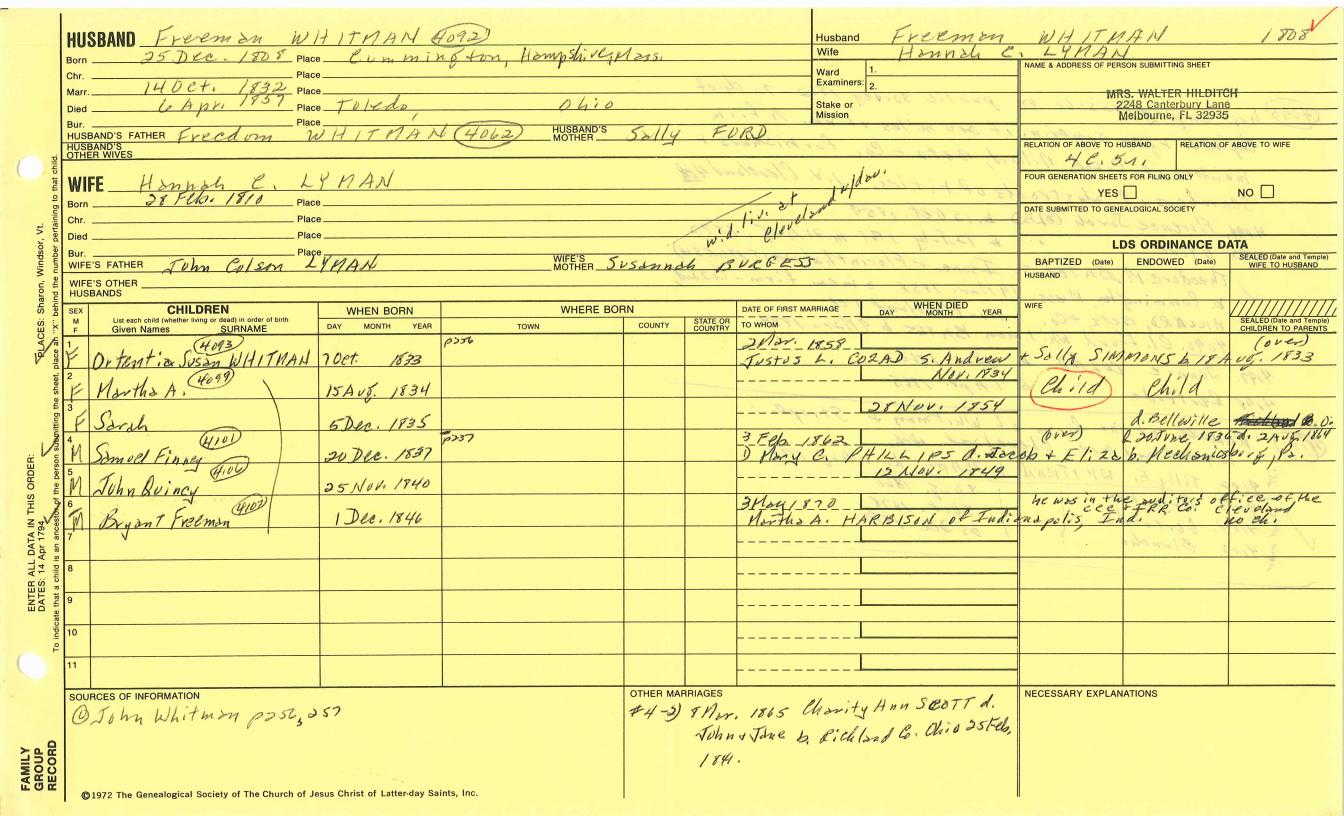 HUSBAND Freeman WHITMAN 4092
Born 25 Dec. 1808 Place Cummington, Hampshire, Mass.
Chr. Place
Marr. 14 Oct. 1832 Place
Died 6 Apr. 1857 Place Toledo, Ohio
Bur. Place
HUSBAND'S FATHER Freedom WHITMAN 4062 HUSBAND'S MOTHER Sally FORD
HUSBAND'S OTHER WIVES
WIFE Hannah C. LYMAN
Born 28 Feb. 1810 Place
Chr. Place
Died Place
Bur. Place
wid. liv. at
Cleveland w/dau.
WIFE'S FATHER John Colson LYMAN WIFE'S MOTHER Susannah BURGESS
WIFE'S OTHER HUSBANDS
Husband Freeman WHITMAN 1808
Wife Hannah C. LYMAN
Ward Examiners: 1.
2.
Stake or Mission
NAME & ADDRESS OF PERSON SUBMITTING SHEET
MRS. WALTER HILDITCH
2248 Canterbury Lane
Melbourne, FL 32935
RELATION OF ABOVE TO HUSBAND RELATION OF ABOVE TO WIFE
4C.5r.
FOUR GENERATION SHEETS FOR FILING ONLY
YES NO
DATE SUBMITTED TO GENEALOGICAL SOCIETY
LDS ORDINANCE DATA
BAPTIZED (Date) ENDOWED (Date) SEALED (Date and Temple) WIFE TO HUSBAND
HUSBAND
WIFE
SEALED (Date and Temple) CHILDREN TO PARENTS
SEX M F
CHILDREN
List each child (whether living or dead) in order of birth
Given Names SURNAME
WHEN BORN
DAY MONTH YEAR
WHERE BORN
TOWN COUNTY STATE OR COUNTRY
DATE OF FIRST MARRIAGE
TO WHOM
WHEN DIED
DAY MONTH YEAR
1 4093 p256 2 Mar. 1858 (over)
F Ortentia Susan WHITMAN 7 Oct. 1833 Justus L. COZAD s. Andrew + Sally SIMMONS b. 18 Aug. 1833
2 4099 Nov. 1834
F Martha A. 15 Aug. 1834 Child Child
3 28 Nov. 1854
F Sarah 5 Dec. 1835 d. Belleville
4 4101 p257 3 Feb. 1862 (over) 20 June 1836 d. 2 Aug. 1864
M Samuel Finney 20 Dec. 1837 1) Mary C. PHILLIPS d. Jacob + Eliza b. Mechanicsburg, Pa.
5 4106 12 Nov. 1849
M John Quincy 25 Nov. 1840
6 4107 3 May 1870 he was in the auditors office of the
CCC + IRR Co. Cleveland
M Bryant Freeman 1 Dec. 1846 Martha A. HARBISON of Indianapolis, Ind. no ch.
7
8
9
10
11
SOURCES OF INFORMATION
John Whitman p256, 257
OTHER MARRIAGES
#4-2) 8 Mar. 1865 Charity Ann SCOTT d.
John + Jane b. Richland Co. Ohio 25 Feb.
1841.
NECESSARY EXPLANATIONS
©1972 The Genealogical Society of The Church of Jesus Christ of Latter-day Saints, Inc.
FAMILY GROUP RECORD
ENTER ALL DATA IN THIS ORDER:
DATES: 14 Apr 1794 PLACES: Sharon, Windsor, Vt.
To indicate that a child is an ancestor of the person submitting the sheet, place an "X" behind the number pertaining to that child.